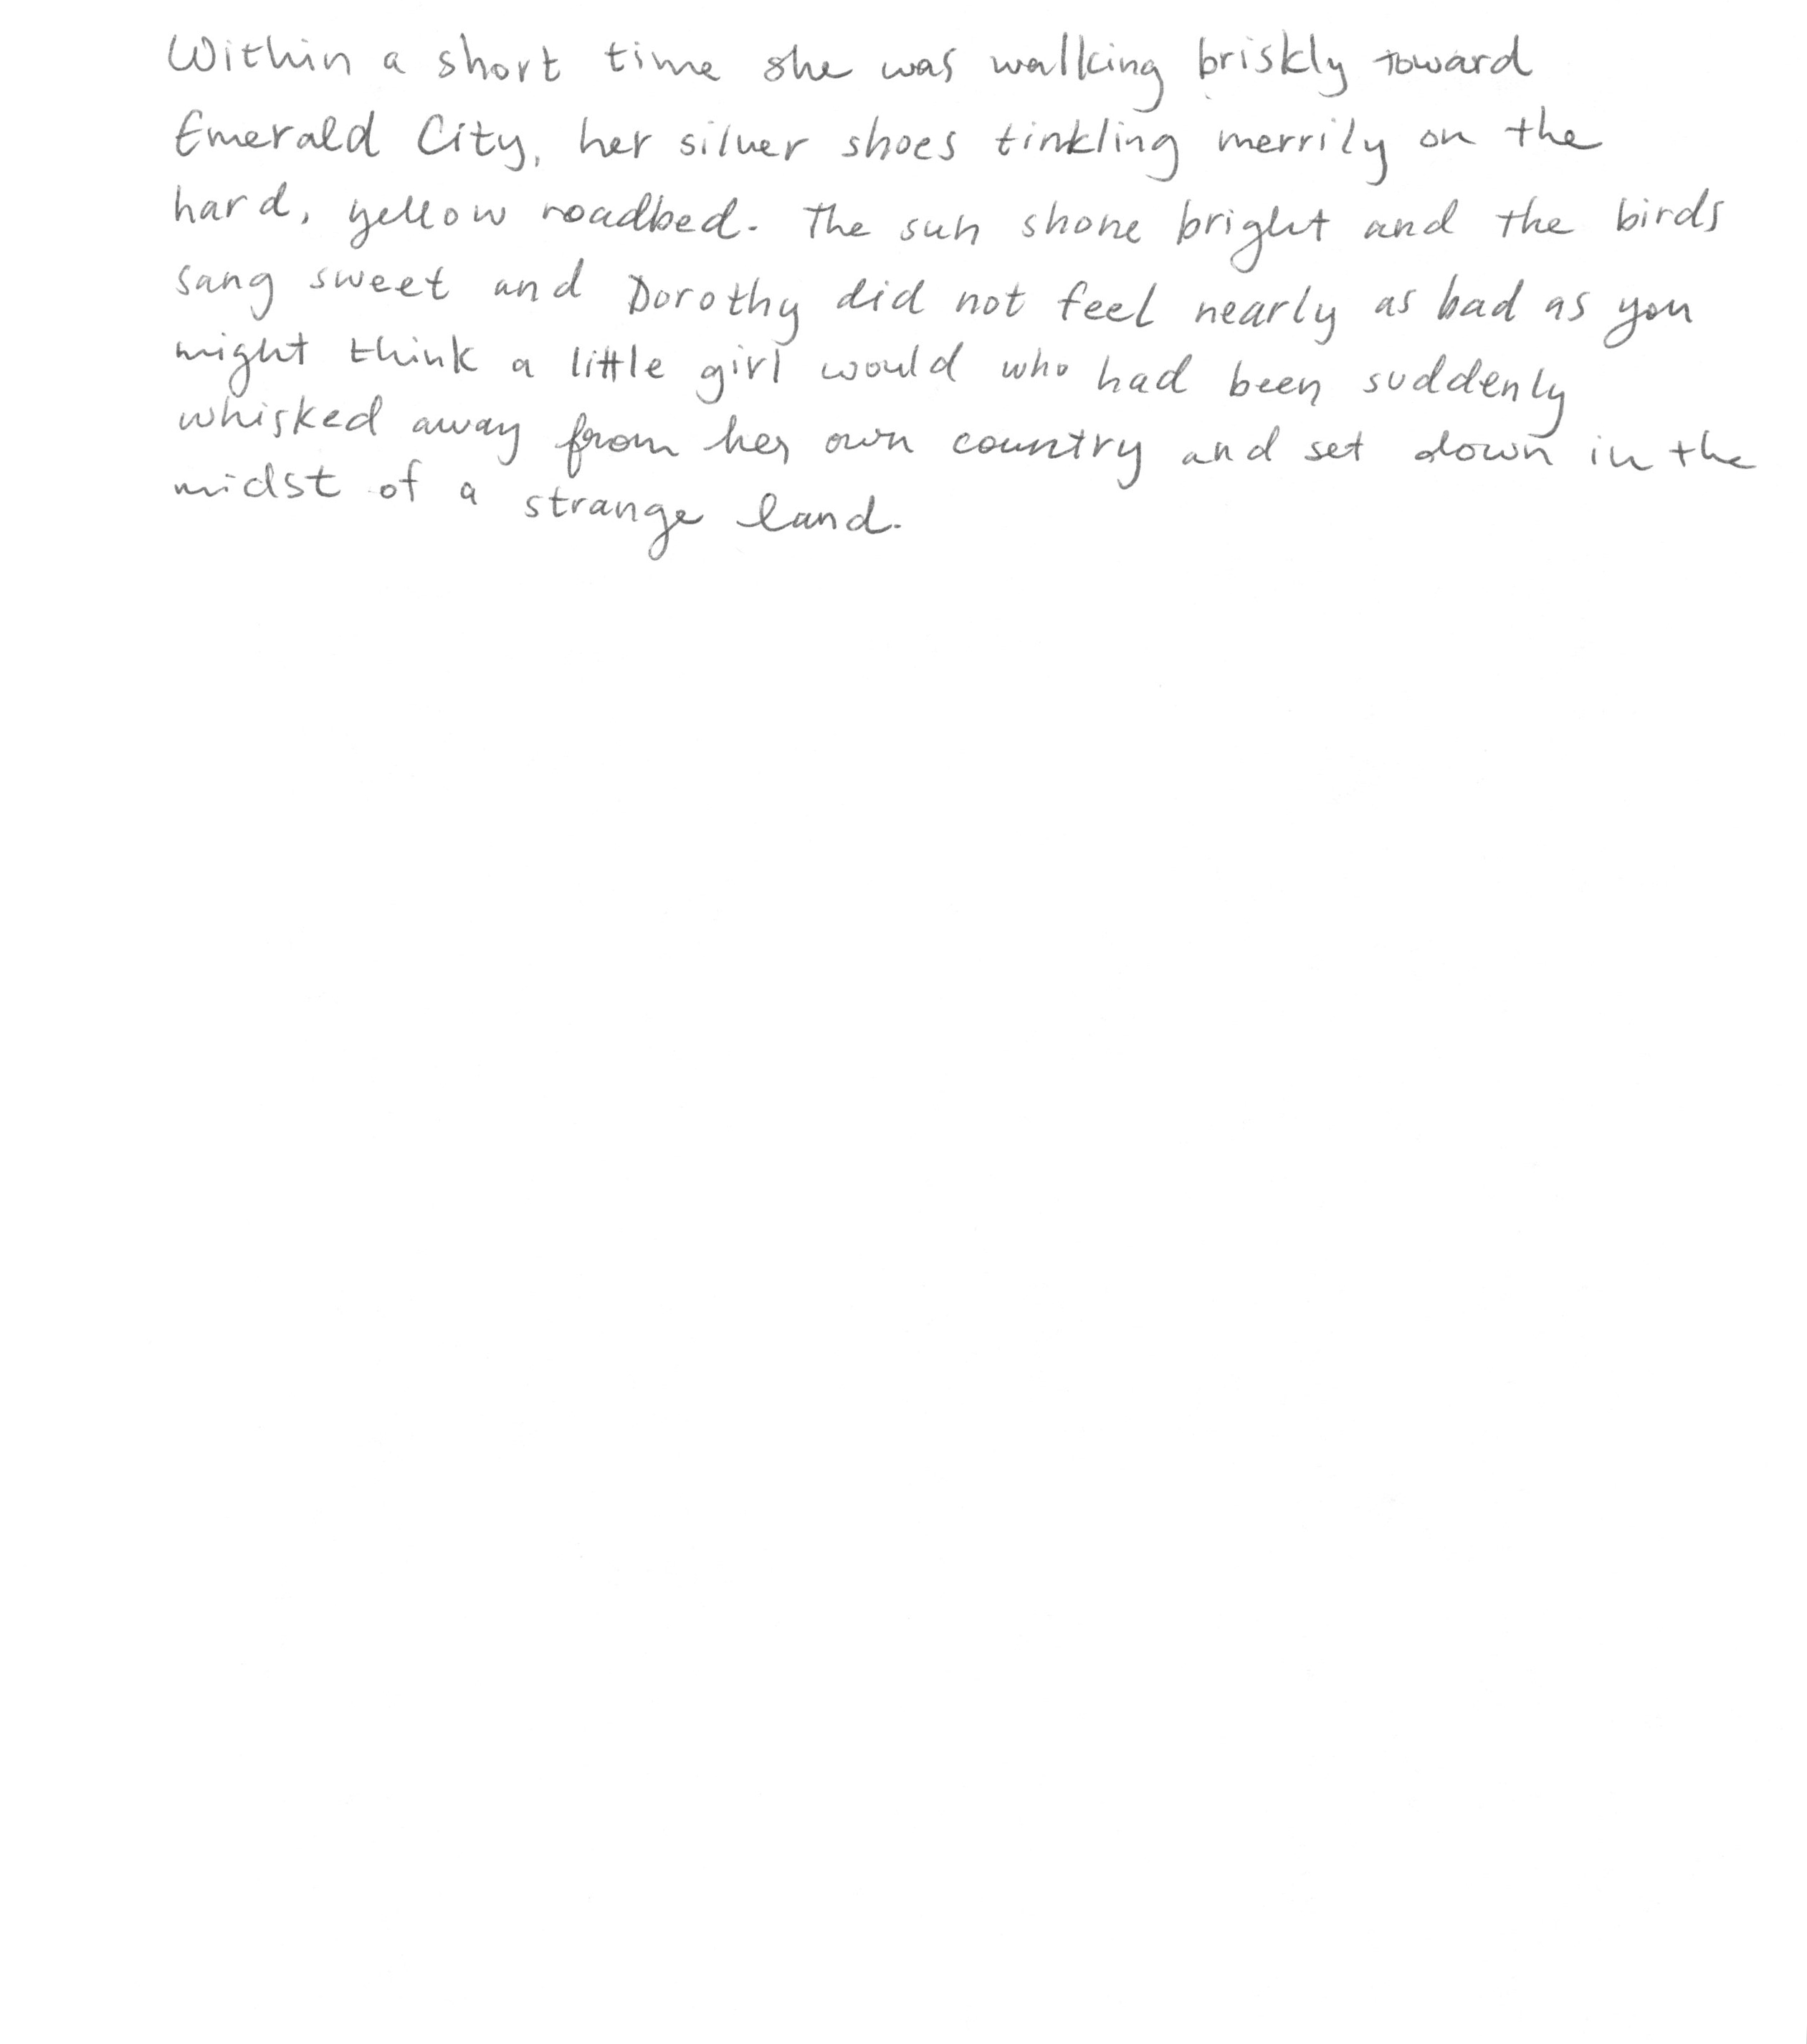 Within a short time she was walking briskly toward
Emerald City, her silver shoes tinkling merrily on the
hard, yellow roadbed. The sun shone bright and the birds
sang sweet and Dorothy did not feel nearly as bad as you
might think a little girl would who had been suddenly
whisked away from her own country and set down in the
midst of a strange land.